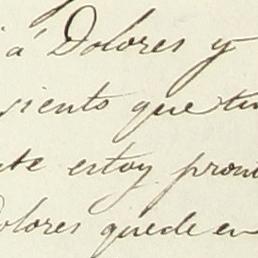 á Dolores y
siento que tu
te estoy pron
Dolores quede en